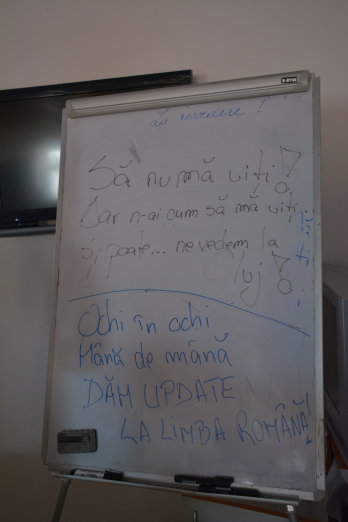 La revedere!
Să nu mă uiți!
Dar n-ai cum să mă uiți...
și poate... ne vedem la
Cluj!
Ochi în ochi
Mână de mână
DĂM UPDATE
LA LIMBA ROMÂNĂ!